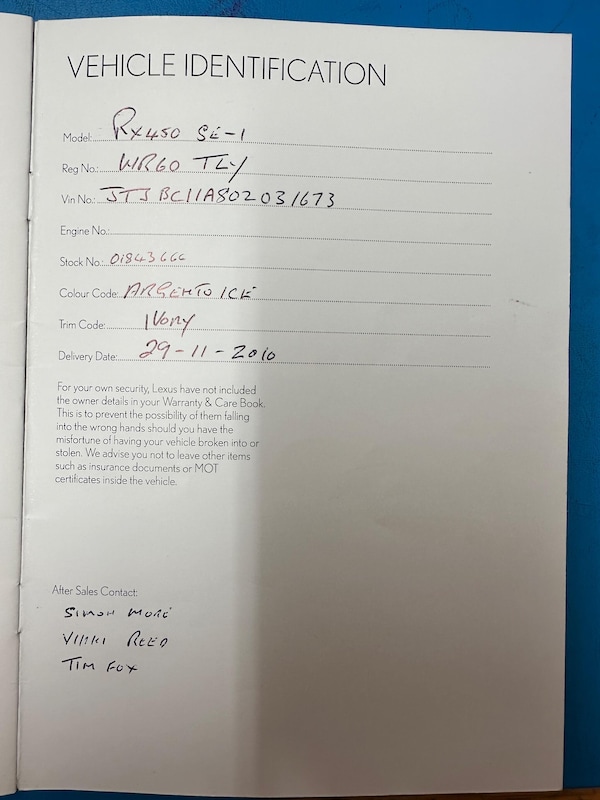 VEHICLE IDENTIFICATION
Model: RX450 SE-I
Reg No.: WR60 TLY
Vin No.: JTJBC11A802031673
Engine No.:
Stock No.: 01843666
Colour Code: ARGENTO ICE
Trim Code: IVORY
Delivery Date: 29-11-2010
For your own security, Lexus have not included
the owner details in your Warranty & Care Book.
This is to prevent the possibility of them falling
into the wrong hands should you have the
misfortune of having your vehicle broken into or
stolen. We advise you not to leave other items
such as insurance documents or MOT
certificates inside the vehicle.
After Sales Contact:
SIMON MORE
VIKKI REED
TIM FOX